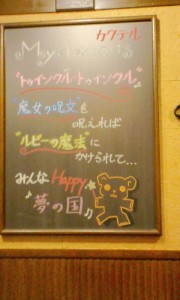 カクテル
"トゥインクルトゥインクル"
魔女の呪文"も
唱えれば
"ルビーの魔法"に
かけられて...
みんなHappy
♪夢の国♪